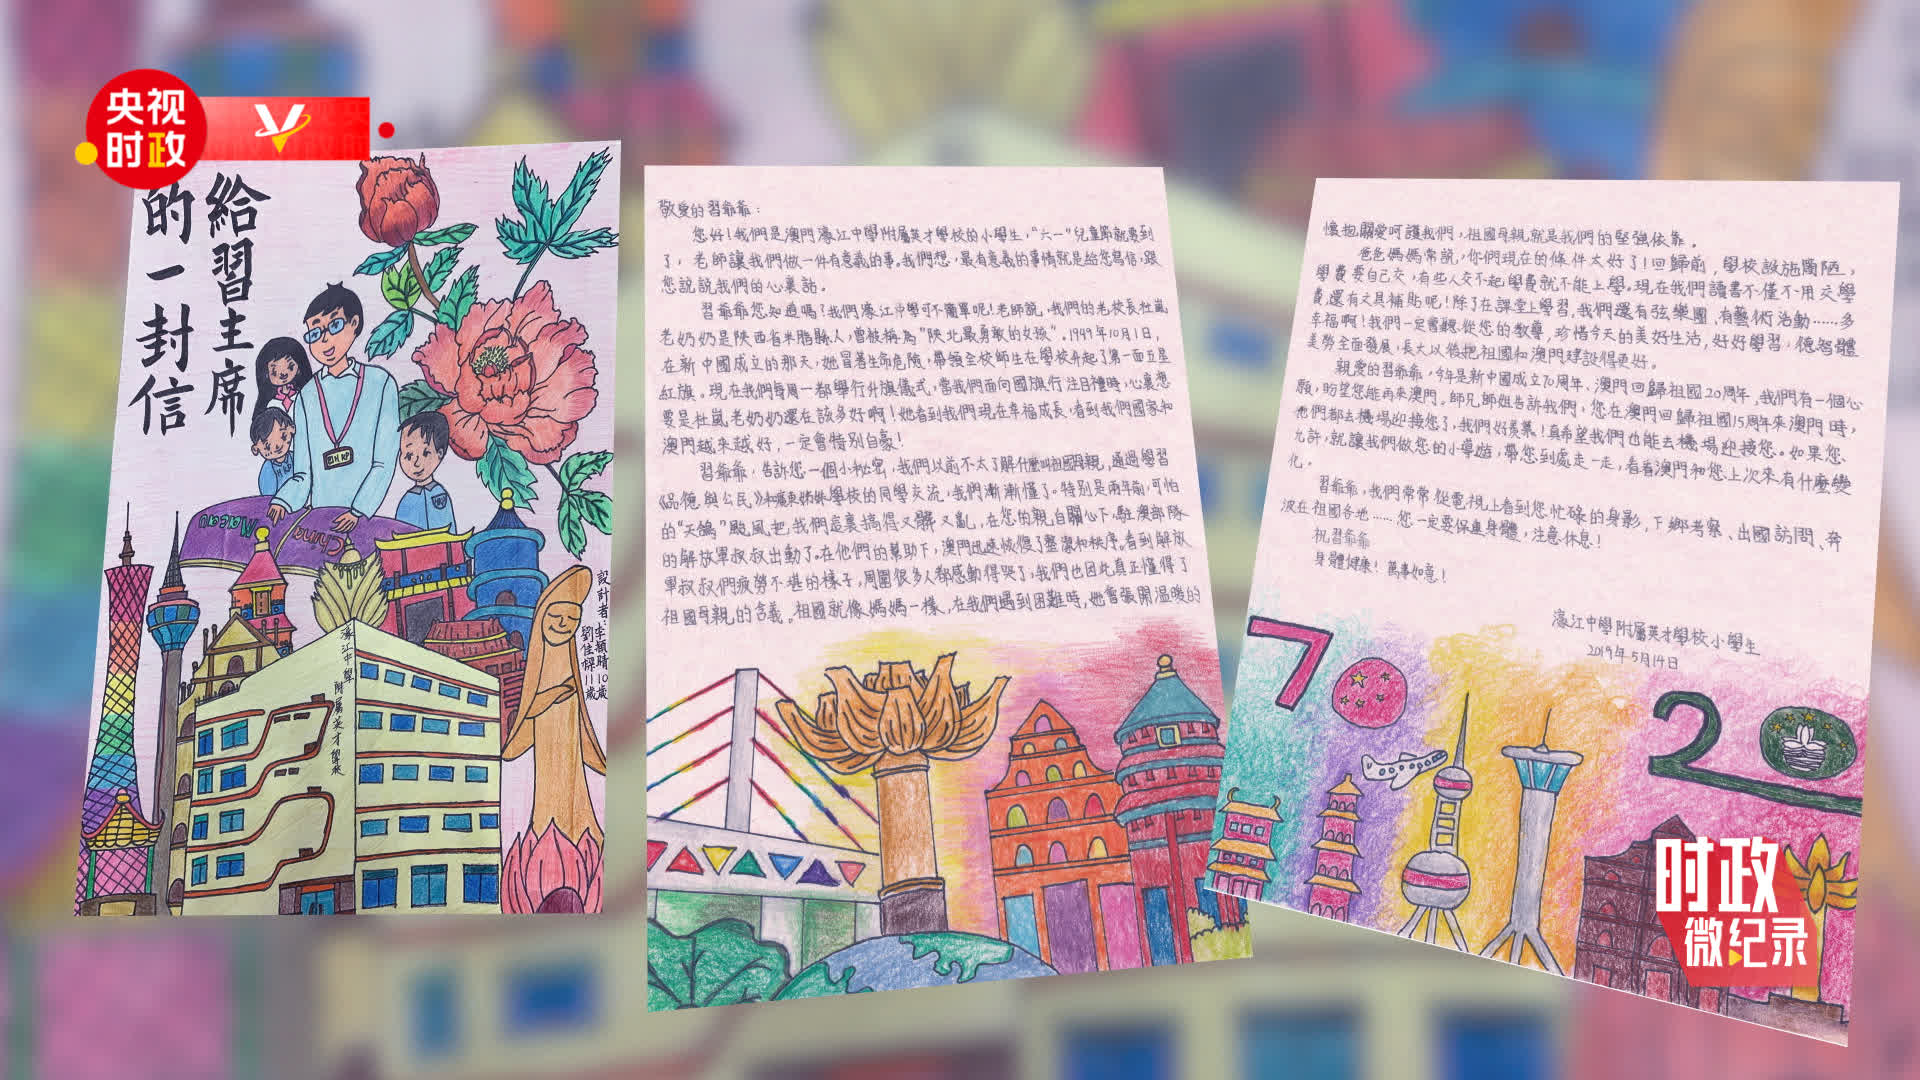 央视
时政
給習主席
的一封信
Macau
China
設計者：李穎晴 10歲
11歲
濠江中學
附屬英才學校
敬愛的習爺爺：
您好！我們是澳門濠江中學附屬英才學校的小學生，“六一”兒童節就要到
了，老師讓我們做一件有意義的事。我們想，最有意義的事情就是給您寫信，跟
您說說我們的心裏話。
習爺爺您知道嗎？我們濠江中學可不簡單呢！老師說，我們的老校長杜嵐
老奶奶是陝西省米脂縣人，曾被稱為“陝北最勇敢的女孩”。1949年10月1日，
在新中國成立的那天，她冒著生命危險，帶領全校師生在學校升起了第一面五星
紅旗。現在我們每周一都舉行升旗儀式，當我們面向國旗行注目禮時，心裏想
要是杜嵐老奶奶還在該多好啊！她看到我們現在幸福成長，看到我們國家和
澳門越來越好，一定會特別自豪！
習爺爺，告訴您一個小秘密，我們以前不太了解什麼叫祖國母親，通過學習
《品德與公民》和廣東姊妹學校的同學交流，我們漸漸懂了。特別是兩年前，可怕
的“天鴿”颱風把我們這裏搞得又髒又亂，在您的親自關心下，駐澳部隊
的解放軍叔叔出動了。在他們的幫助下，澳門迅速恢復了整潔和秩序。看到解放
軍叔叔們疲勞不堪的樣子，周圍很多人都感動得哭了，我們也因此真正懂得了
祖國母親的含義。祖國就像媽媽一樣，在我們遇到困難時，她會張開溫暖的
懷抱關愛呵護我們，祖國母親就是我們的堅強依靠。
爸爸媽媽常說，你們現在的條件太好了！回歸前，學校設施簡陋，
學費要自己交，有些人交不起學費就不能上學。現在我們讀書不僅不用交學
費，還有文具補貼呢！除了在課堂上學習，我們還有弦樂團、有藝術活動……多
幸福啊！我們一定會聽從您的教導，珍惜今天的美好生活，好好學習，德智體
美勞全面發展，長大以後把祖國和澳門建設得更好。
親愛的習爺爺，今年是新中國成立70周年、澳門回歸祖國20周年，我們有一個心
願，盼望您能再來澳門。師兄師姐告訴我們，您在澳門回歸祖國15周年來澳門時，
他們都去機場迎接您了，我們好羨慕！真希望我們也能去機場迎接您。如果您
允許，就讓我們做您的小導遊，帶您到處走一走，看看澳門和您上次來有什麼變
化。
習爺爺，我們常常從電視上看到您忙碌的身影，下鄉考察、出國訪問、奔
波在祖國各地……您一定要保重身體，注意休息！
祝習爺爺
身體健康！萬事如意！
濠江中學附屬英才學校小學生
2019年5月14日
70
20
时政
微纪录